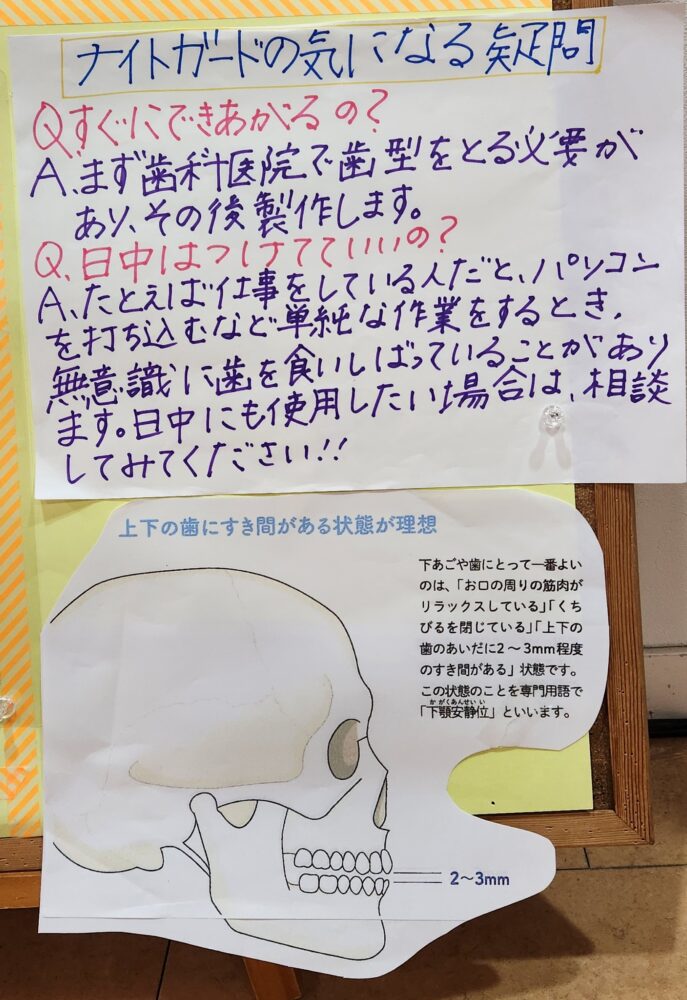 ナイトガードの気になる疑問
Q.すぐにできあがるの?
A、まず歯科医院で歯型をとる必要が
あり、その後製作します。
Q、日中はつけてていいの?
A、たとえば仕事をしている人だと、パソコン
を打ち込むなど単純な作業をするとき、
無意識に歯を食いしばっていることがあり
ます。日中にも使用したい場合は、相談
してみてください!!
上下の歯にすき間がある状態が理想
下あごや歯にとって一番よい
のは、「お口の周りの筋肉が
リラックスしている」「くち
びるを閉じている」「上下の
歯のあいだに2〜3mm程度
のすき間がある」状態です。
この状態のことを専門用語で
かがくあんせいい
「下顎安静位」といいます。
2〜3mm